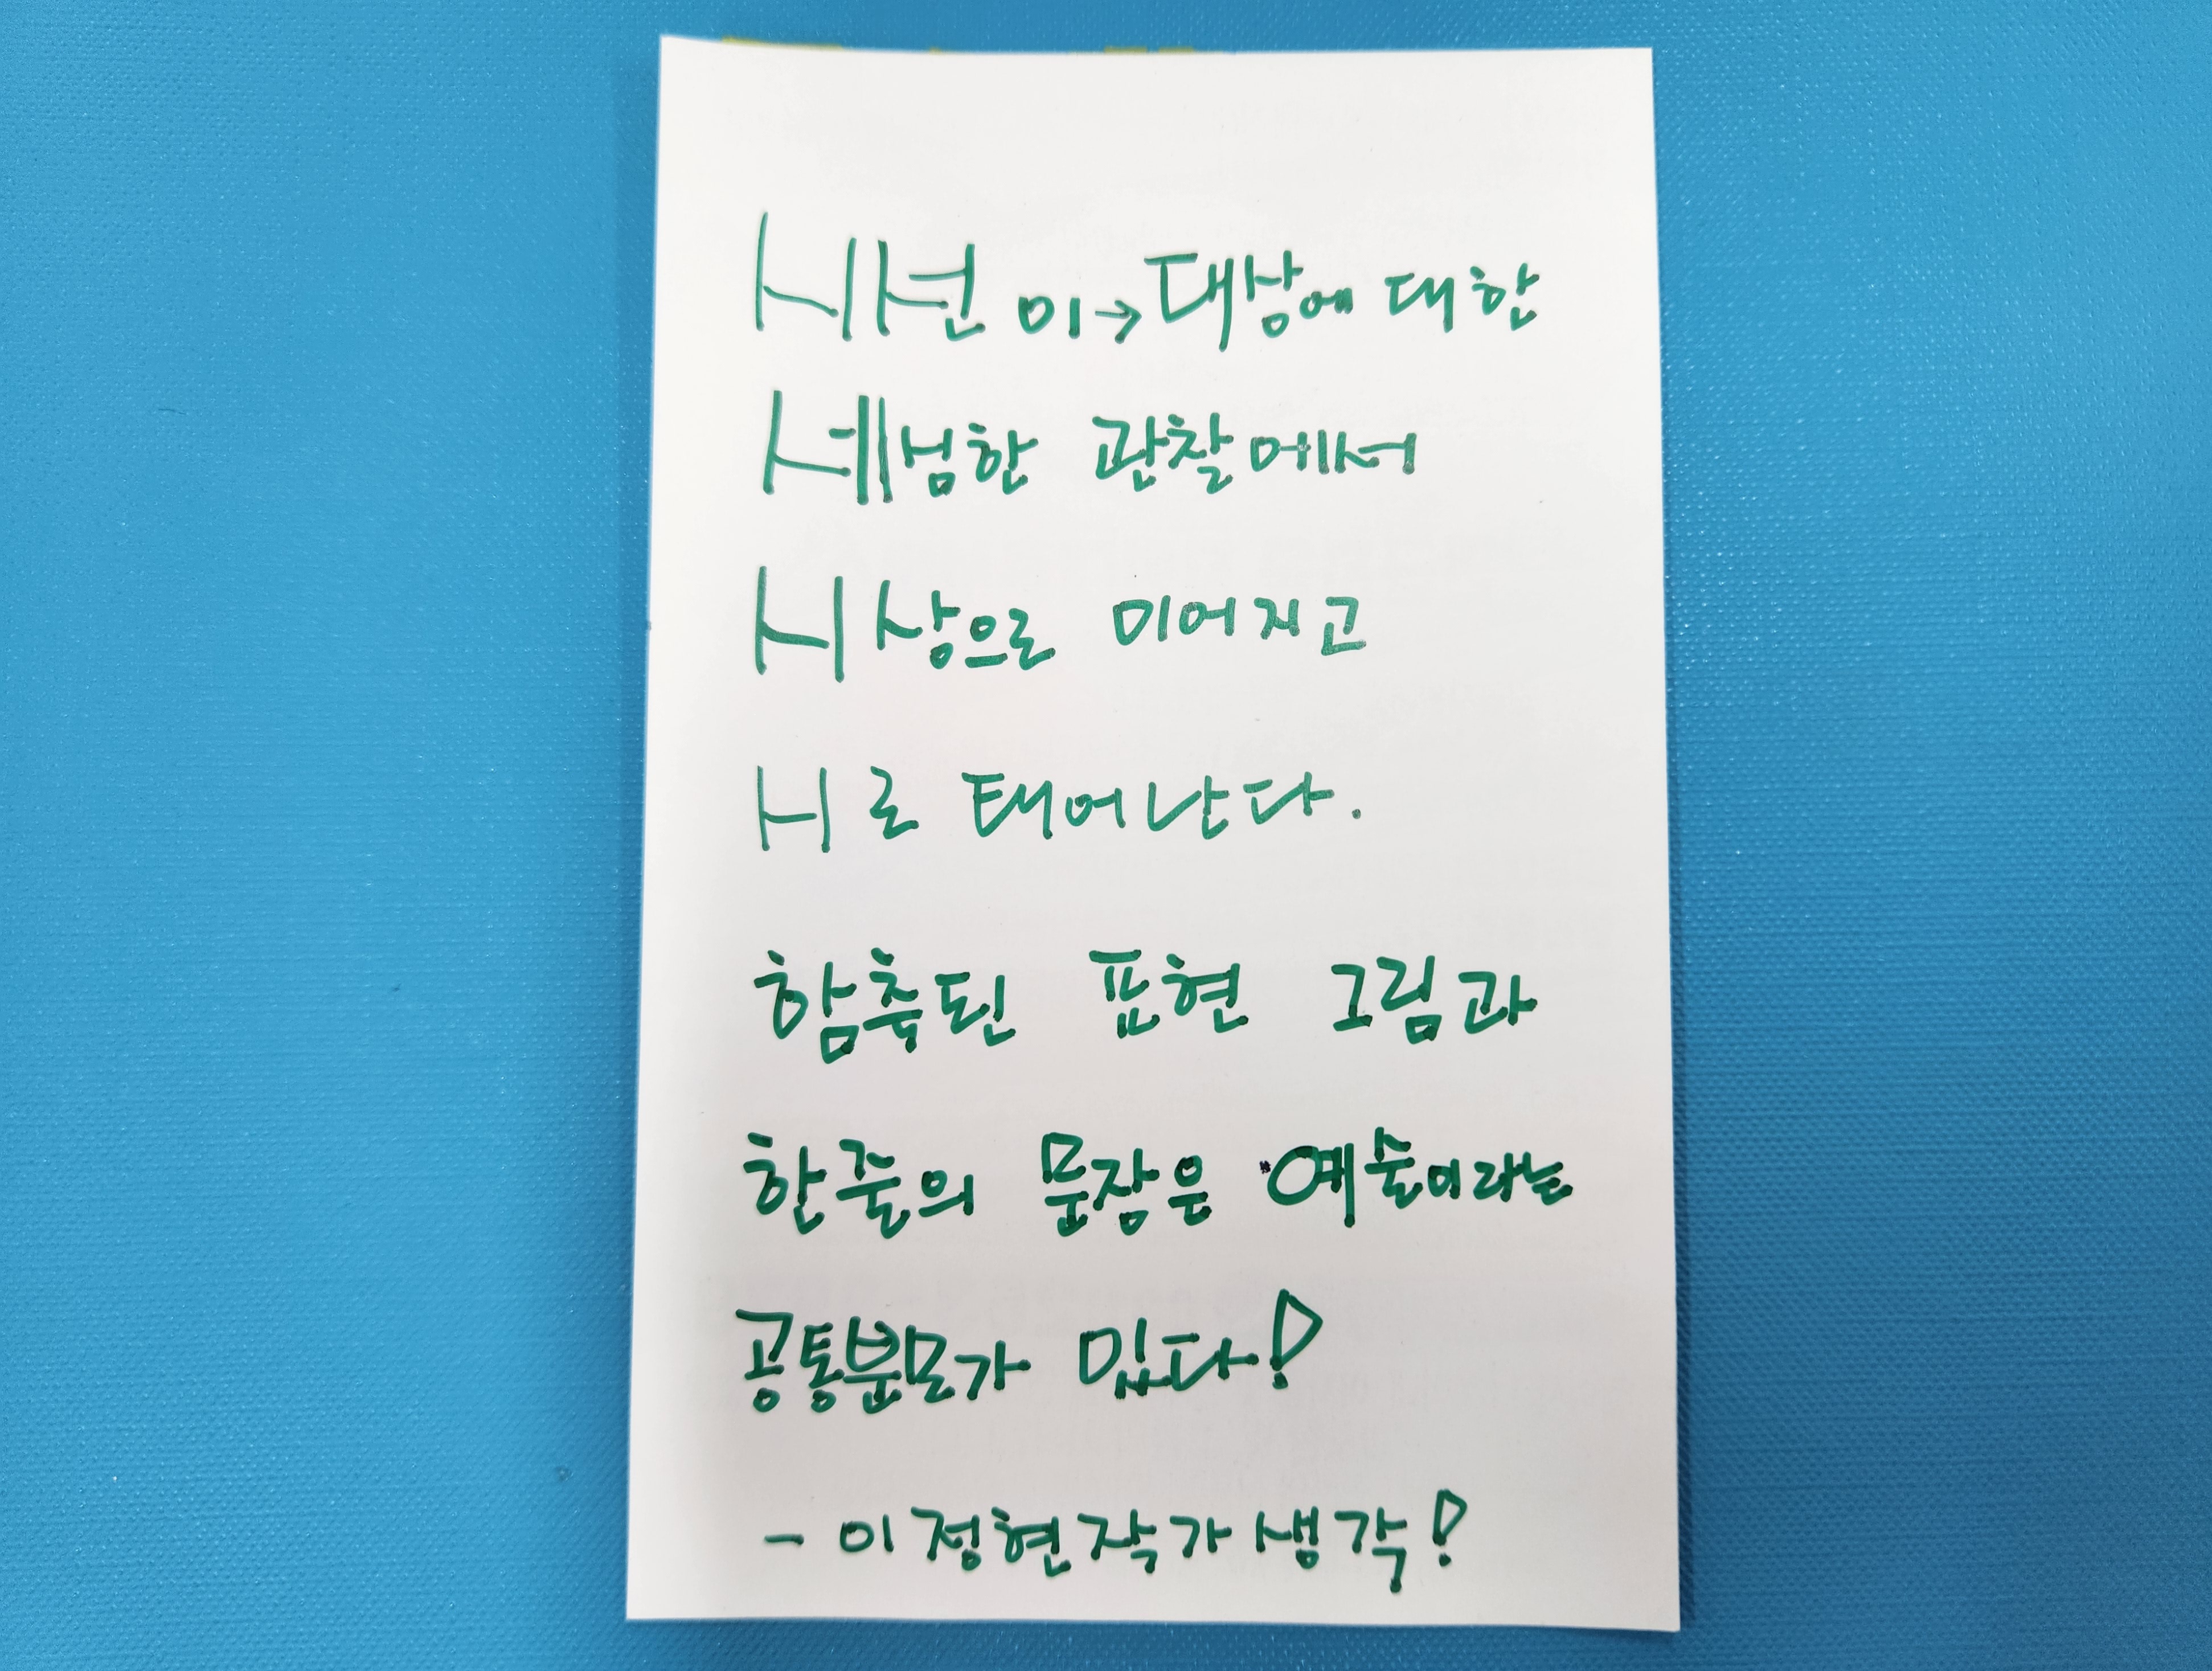 시선이→대상에 대한
세섬한 관찰에서
시상으로 이어지고
시로 태어난다.
함축된 표현 그림과
한줄의 문장은 예술이라는
공통분모가 있다!
- 이정현작가생각!